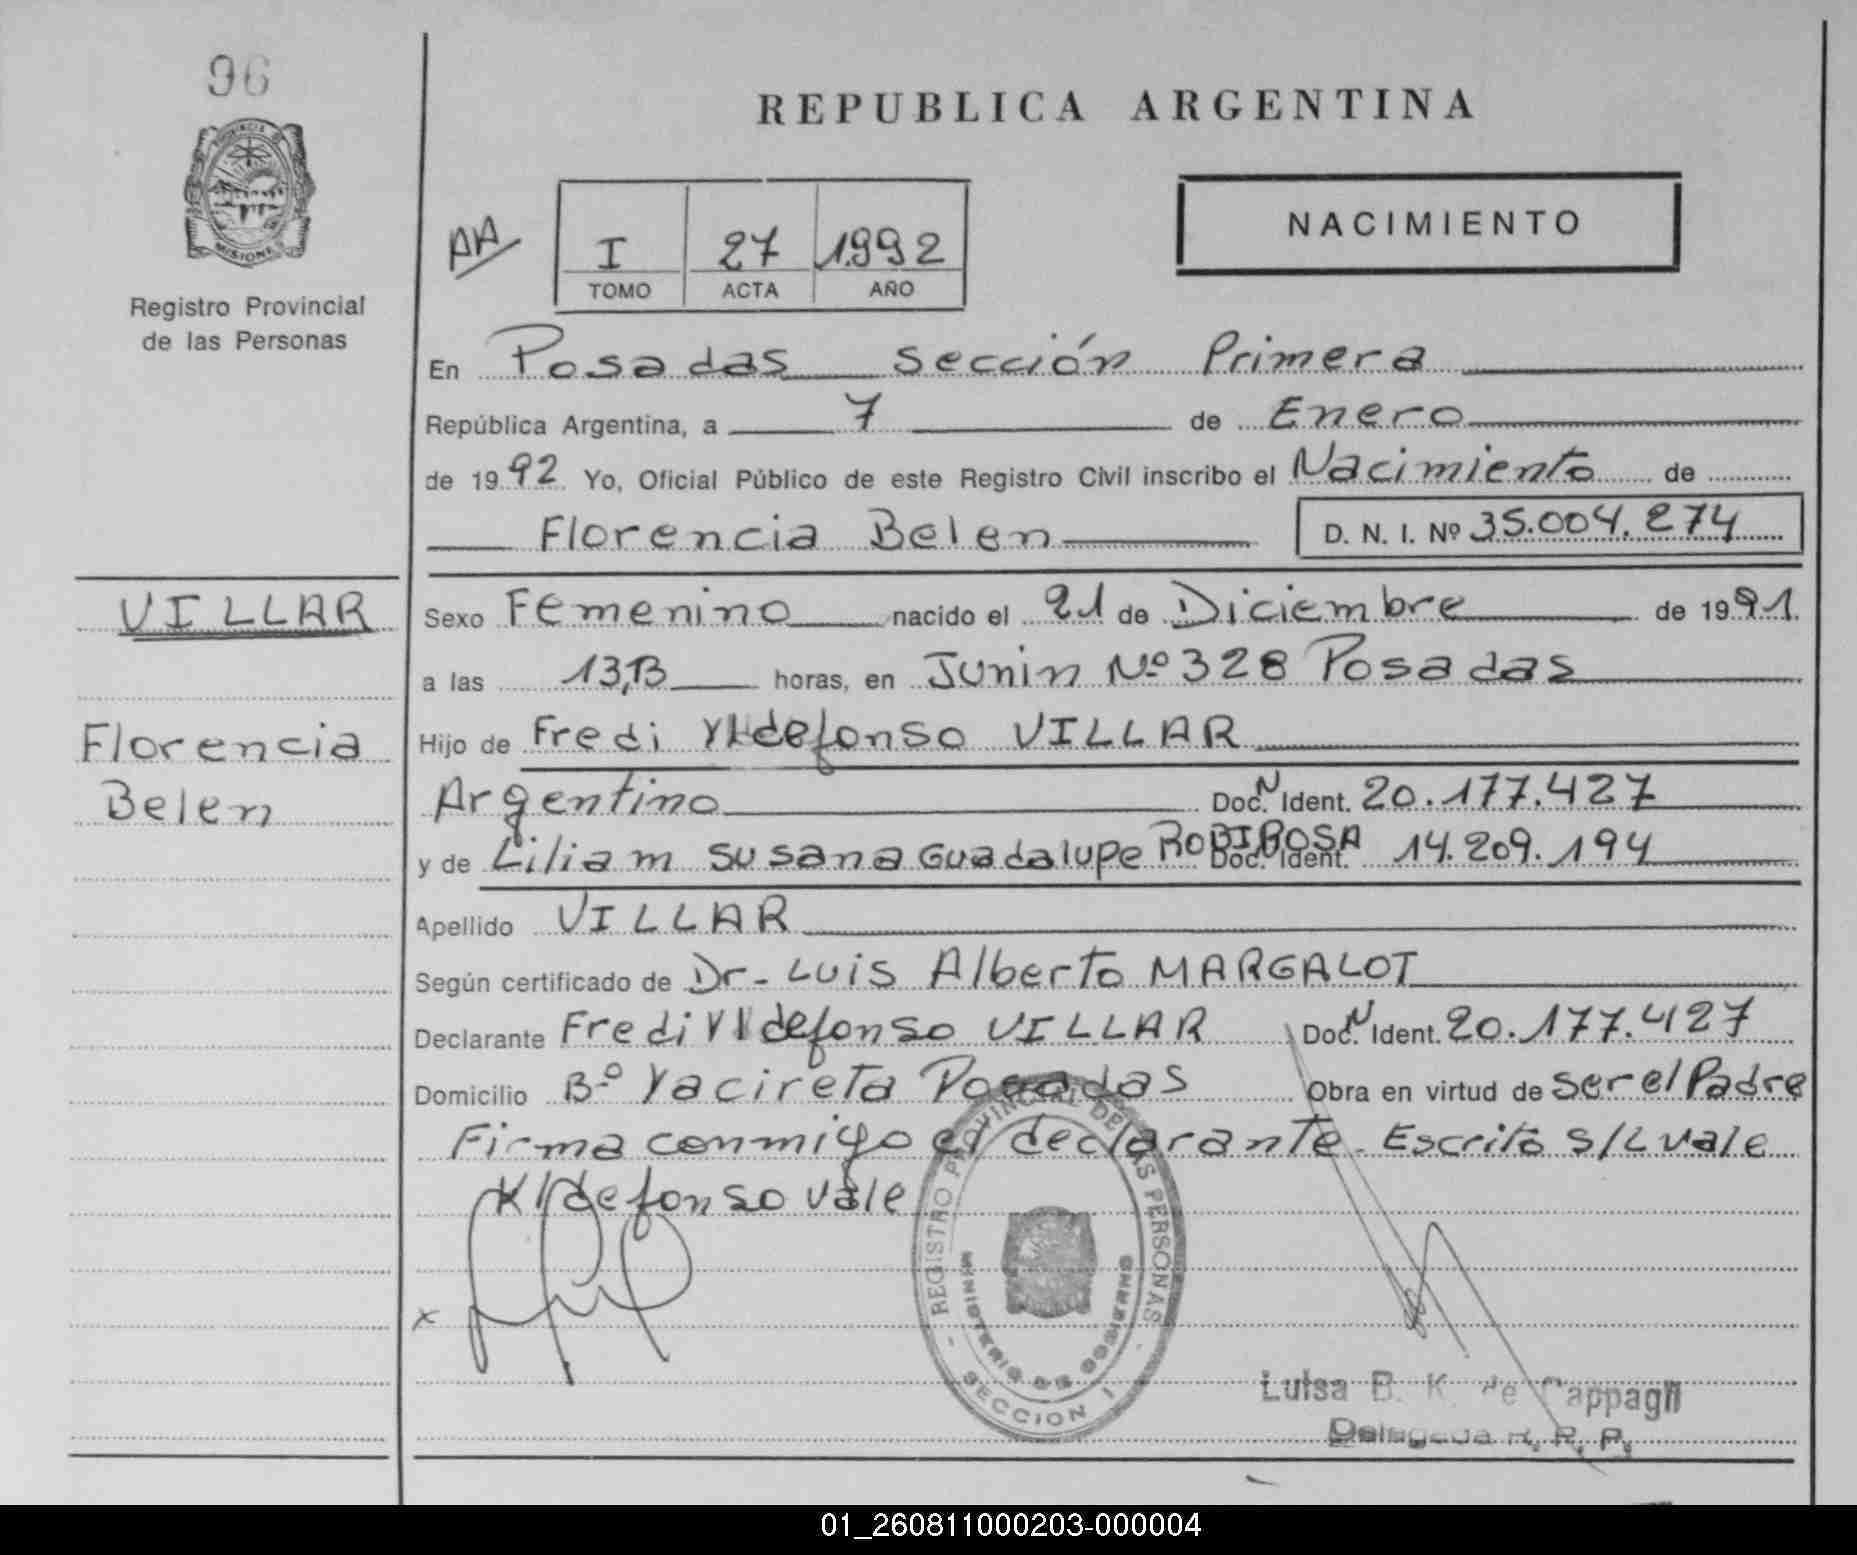 96
PROVINCIA DE
MISIONES
Registro Provincial
de las Personas
REPUBLICA ARGENTINA
NACIMIENTO
AA
I 27 1992
TOMO ACTA AÑO
En Posadas sección Primera
República Argentina, a 7 de Enero
de 1992 Yo, Oficial Público de este Registro Civil inscribo el Nacimiento de
Florencia Belen D. N. I. Nº 35.004.274
VILLAR
Florencia
Belen
Sexo Femenino nacido el 21 de Diciembre de 1991.
a las 13,13 horas, en Junin Nº 328 Posadas
Hijo de Fredi YLdefonso VILLAR
Argentino Doc. N Ident. 20.177.427
y de Liliam Susana Guadalupe ROBIROSA Doc. Ident. 14.209.194
Apellido VILLAR
Según certificado de Dr- Luis Alberto MARGALOT
Declarante Fredi Yldefonso VILLAR Doc. N Ident. 20.177.427
Domicilio Bº Yacireta Posadas Obra en virtud de ser el Padre
Firma conmigo el declarante. Escrito s/L vale
Yldefonso vale
x
REGISTRO PROVINCIAL DE LAS PERSONAS
MINISTERIO DE GOBIERNO
- SECCION I -
Luisa B. K. de Cappagli
Delegada R. R. P.
01_260811000203-000004